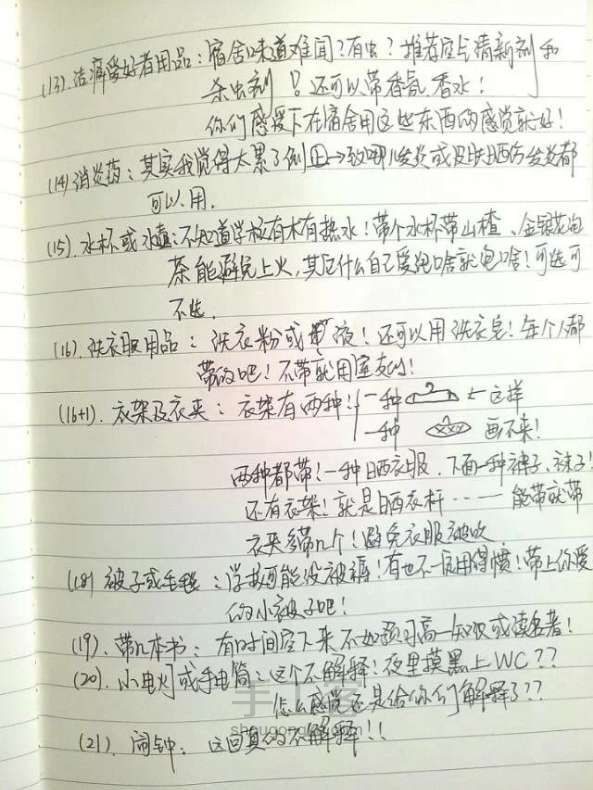 (13) 洁癖爱好者用品：宿舍味道难闻？有虫？推荐空气清新剂和
杀虫剂！还可以带香氛、香水！
你们感受下在宿舍用这些东西的感觉就好！
(14) 消炎药：其实我觉得太累了倒 →致哪儿发炎或皮肤晒伤发炎都
可以用.
(15). 水杯或水壶：不知道学校有木有热水！带个水杯带山楂、金银花泡
茶能避免上火，其它什么自己爱泡啥就泡啥！可选可
不选.
(16). 洗衣服用品：洗衣粉或 液！还可以用洗衣皂！每个人都
带的吧！不带就用室友的！
(16+1). 衣架及衣夹：衣架有两种！一种 ← 这样
一种 画不来！
两种都带！一种晒衣服、下面一种裤子、袜子！
还有衣架！就是晒衣杆…… 能带就带
衣夹多带几个！避免衣服被吹.
(18) 被子或毛毯：学校可能没被褥！有也不一定用得惯！带上你爱
的小被子吧！
(19). 带几本书：有时间空下来不如预习高一知识或读名著！
(20). 小电灯或手电筒：这个不解释！夜里摸黑上WC？？
怎么感觉还是给你们解释了？？
(21). 闹钟：这回真的不解释！！